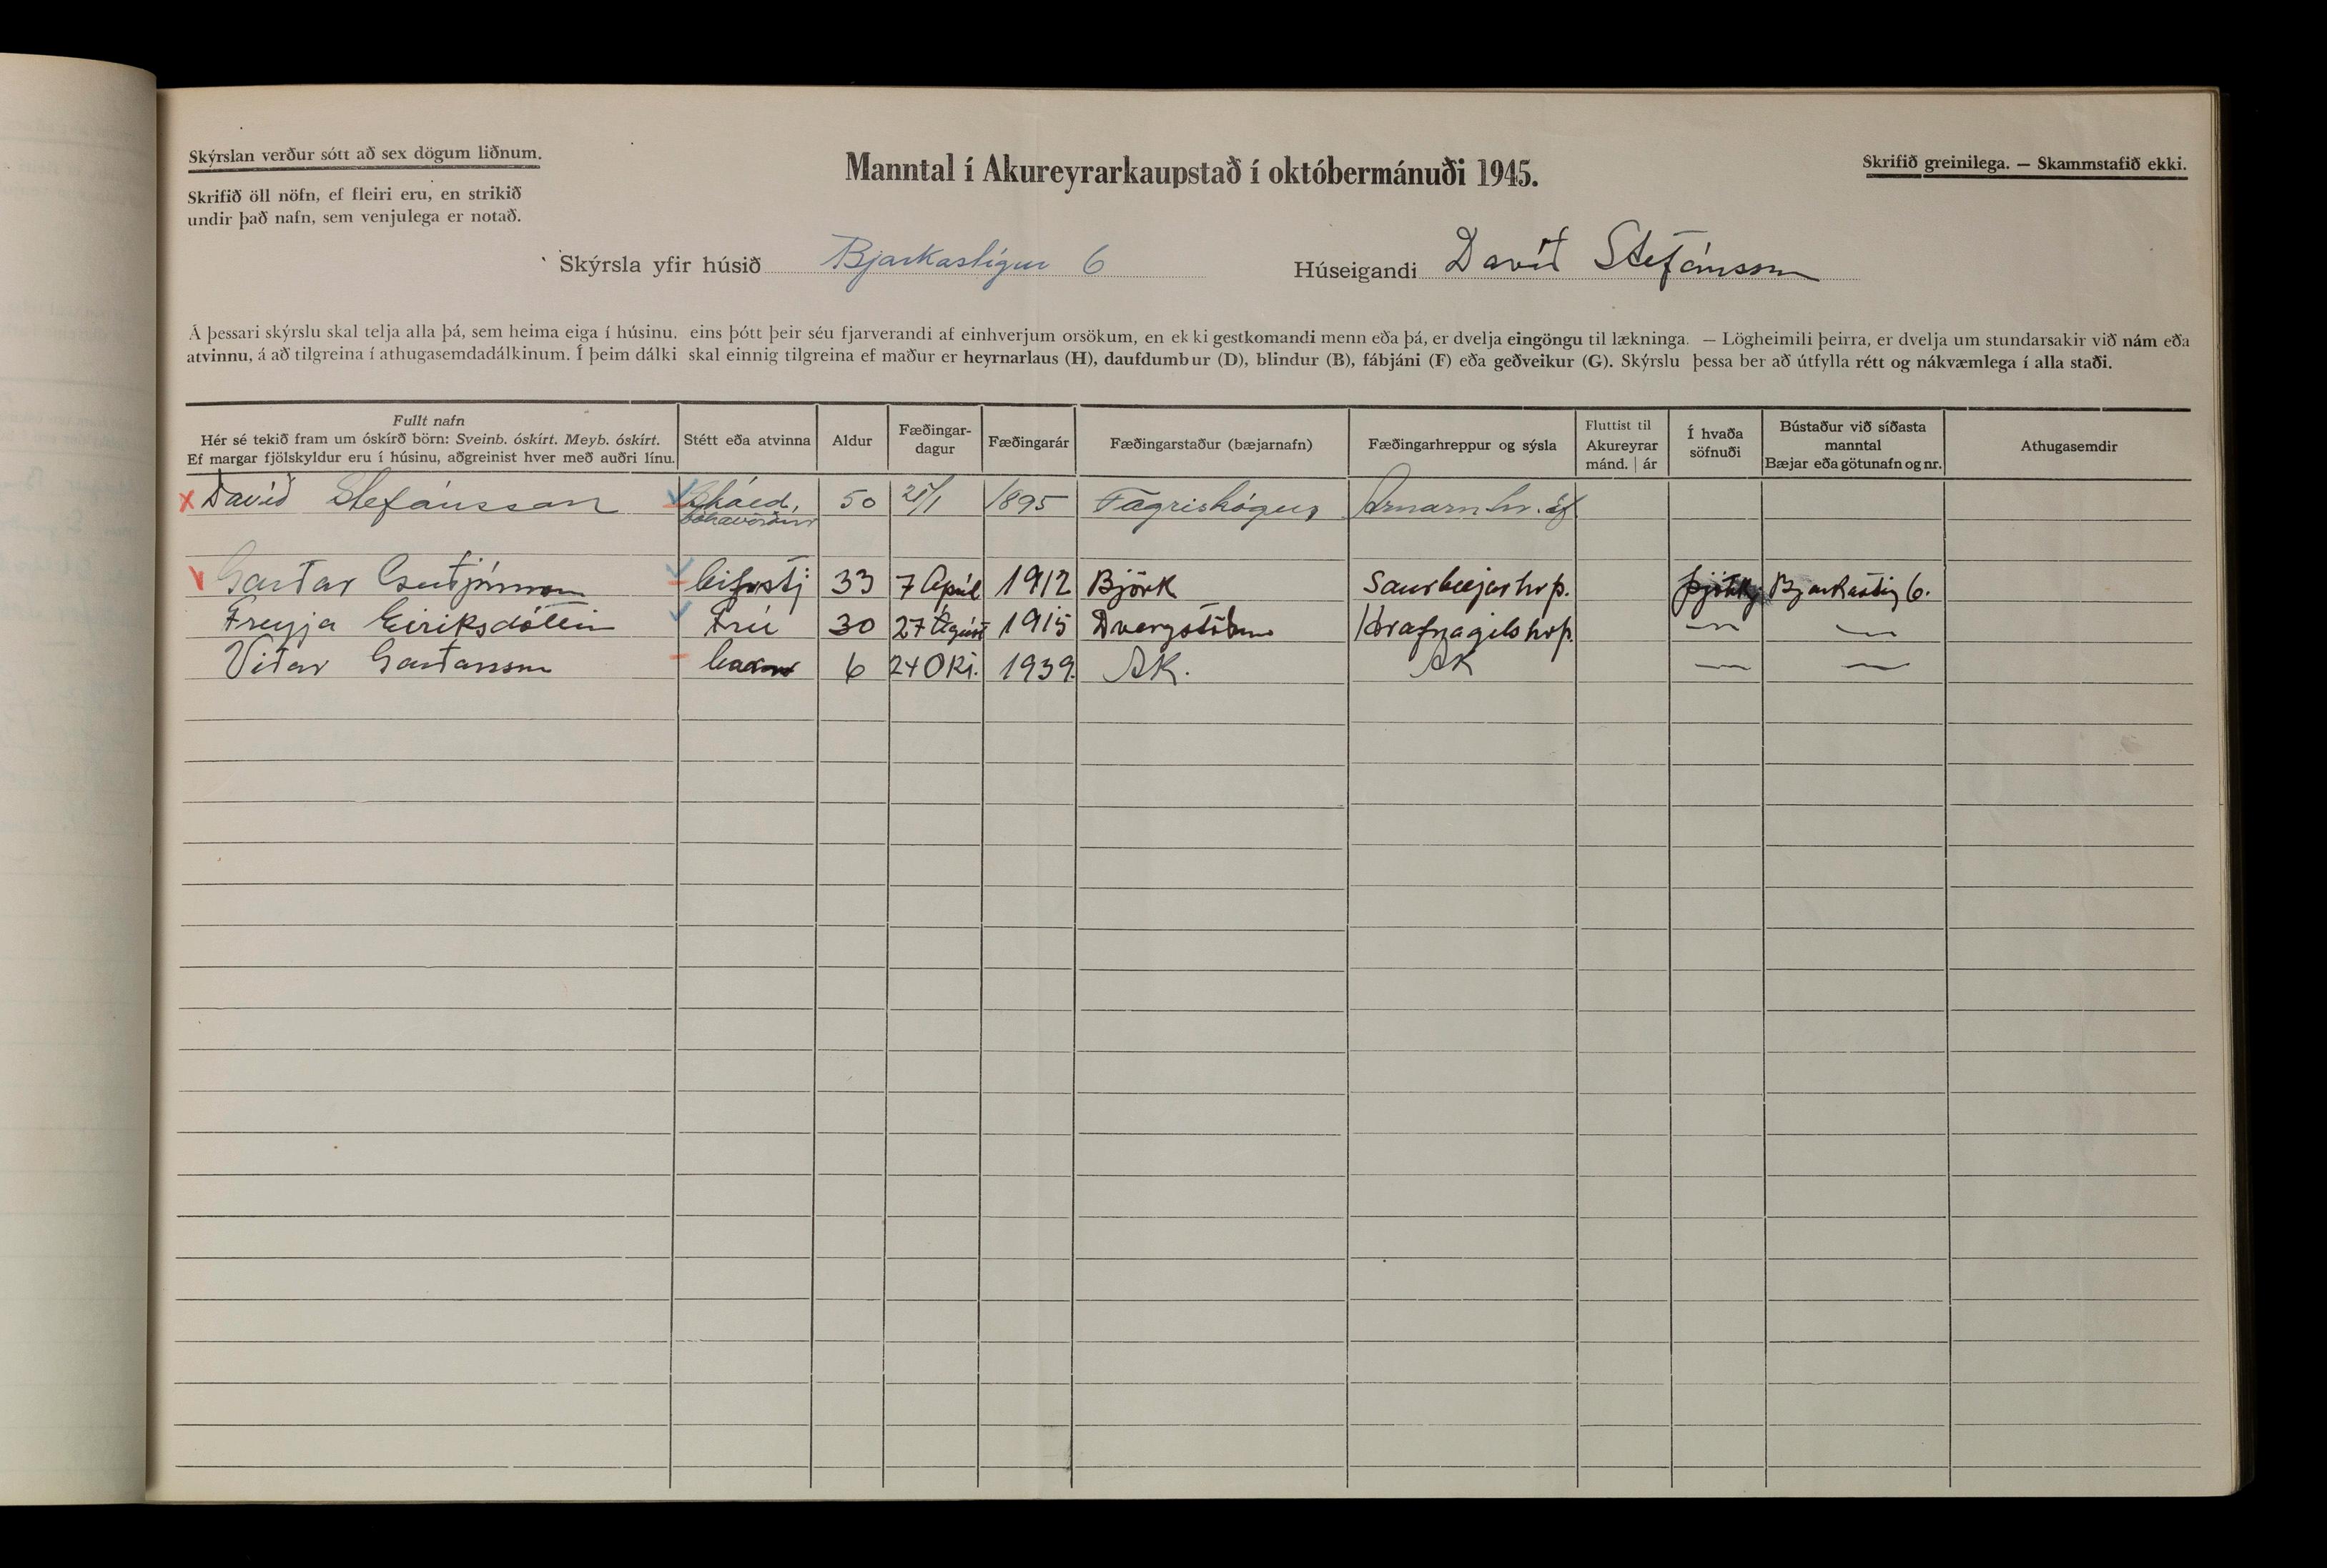 Skýrslan verður sótt að sex dögum liðnum.
Skrifið öll nöfn, ef fleiri eru, en strikið
undir það nafn, sem venjulega er notað.
Manntal í Akureyrarkaupstað í októbermánuði 1945.
Skrifið greinilega. — Skammstafið ekki.
Skýrsla yfir húsið Bjarkastígur 6 Húseigandi Davíð Stefánsson
Á þessari skýrslu skal telja alla þá, sem heima eiga í húsinu, eins þótt þeir séu fjarverandi af einhverjum orsökum, en ekki gestkomandi menn eða þá, er dvelja eingöngu til lækninga. — Lögheimili þeirra, er dvelja um stundarsakir við nám eða
atvinnu, á að tilgreina í athugasemdadálkinum. Í þeim dálki skal einnig tilgreina ef maður er heyrnarlaus (H), daufdumbur (D), blindur (B), fábjáni (F) eða geðveikur (G). Skýrslu þessa ber að útfylla rétt og nákvæmlega í alla staði.
Fullt nafn
Hér sé tekið fram um óskírð börn: Sveinb. óskírt. Meyb. óskírt.
Ef margar fjölskyldur eru í húsinu, aðgreinist hver með auðri línu.
Stétt eða atvinna
Aldur
Fæðingar-
dagur
Fæðingarár
Fæðingarstaður (bæjarnafn)
Fæðingarhreppur og sýsla
Fluttist til
Akureyrar
mánd. | ár
Í hvaða
söfnuði
Bústaður við síðasta
manntal
Bæjar eða götunafn og nr.
Athugasemdir
Davíð Stefánsson Skáld, 50 21/1 1895 Fagriskógur Arnarn.hr. Ef
bókavörður
Garðar Guðjónsson bifrstj 33 7 Apríl 1912 Björk Saurbæjarhrp. Þjóðkj. Bjarkastíg 6.
Freyja Eiríksdóttir Frú 30 27 Ágúst 1915 Dvergstöðum Hrafnagilshrp. — —
Viðar Garðarsson barn 6 24 Okt. 1939. AK. AK — —